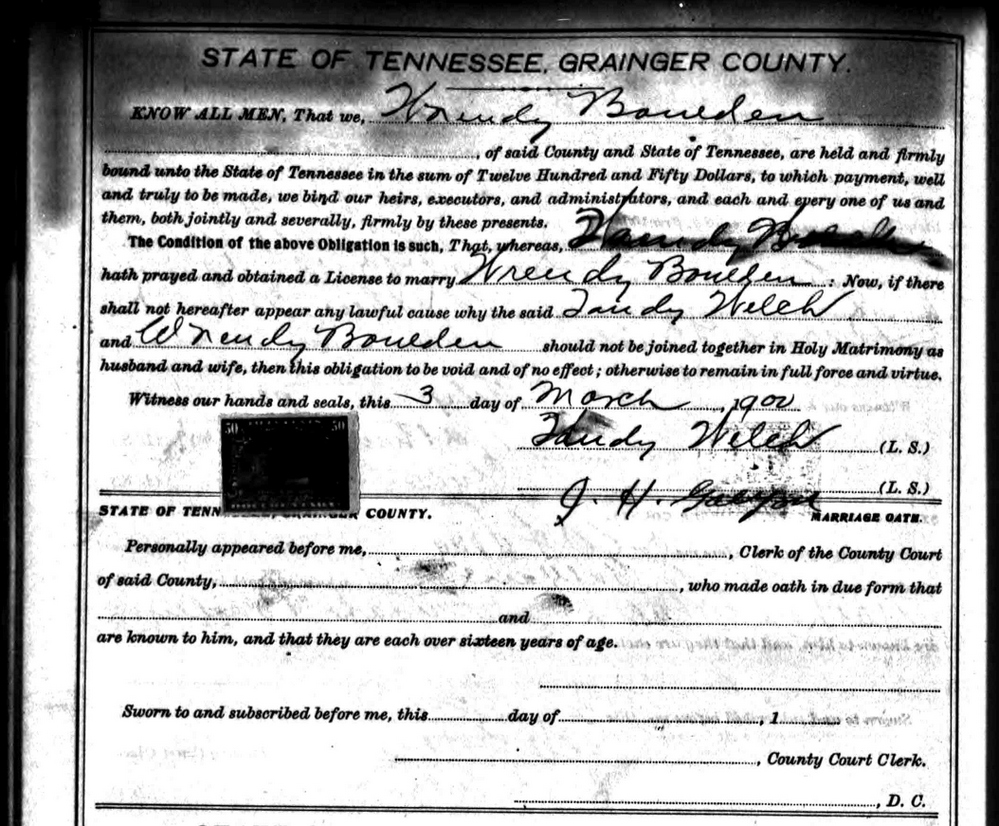 STATE OF TENNESSEE, GRAINGER COUNTY.
KNOW ALL MEN, That we, Wrendy Boulden
, of said County and State of Tennessee, are held and firmly
bound unto the State of Tennessee in the sum of Twelve Hundred and Fifty Dollars, to which payment, well
and truly to be made, we bind our heirs, executors, and administrators, and each and every one of us and
them, both jointly and severally, firmly by these presents.
The Condition of the above Obligation is such, That, whereas,
hath prayed and obtained a License to marry Wrendy Boulden : Now, if there
shall not hereafter appear any lawful cause why the said Tandy Welch
and Wrendy Boulden should not be joined together in Holy Matrimony as
husband and wife, then this obligation to be void and of no effect; otherwise to remain in full force and virtue.
Witness our hands and seals, this 3 day of March , 1900
50 50
Tandy Welch (L. S.)
(L. S.)
J. H.
STATE OF TENN GRAINGER COUNTY. MARRIAGE OATH.
Personally appeared before me, , Clerk of the County Court
of said County, , who made oath in due form that
and
are known to him, and that they are each over sixteen years of age.
Sworn to and subscribed before me, this day of , 1
, County Court Clerk.
, D. C.